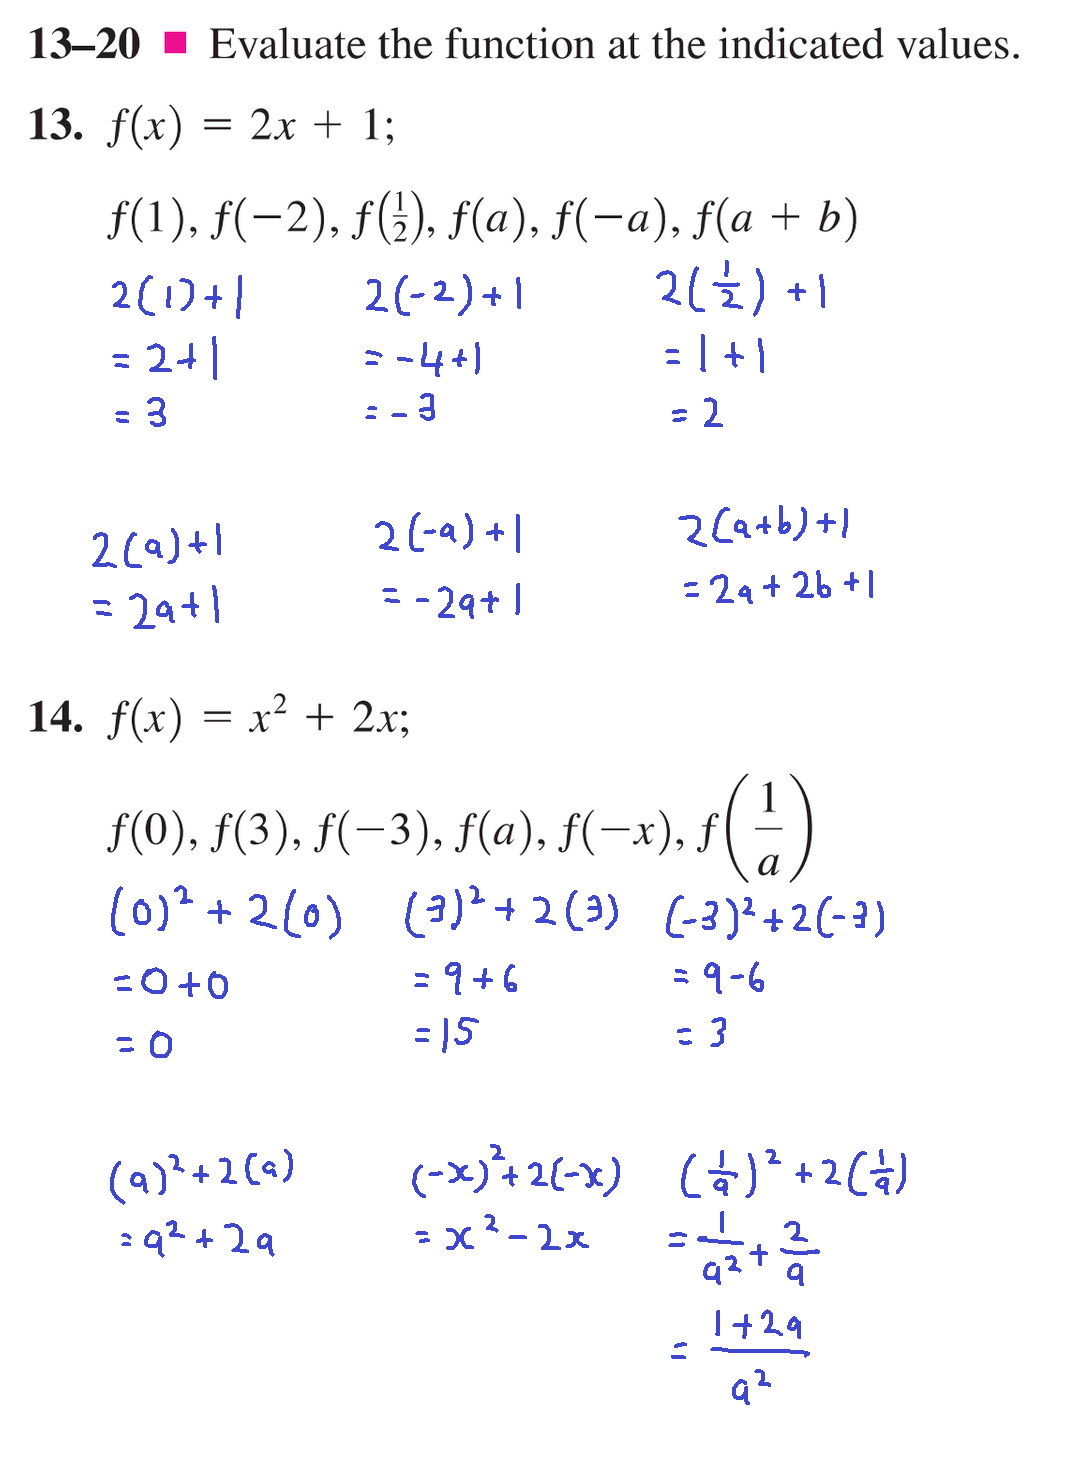 13–20 ■ Evaluate the function at the indicated values.
13. f(x) = 2x + 1;
f(1), f(−2), f(½), f(a), f(−a), f(a + b)
2(1)+1 2(-2)+1 2(1/2)+1
= 2+1 = -4+1 = 1+1
= 3 = -3 = 2
2(a)+1 2(-a)+1 2(a+b)+1
= 2a+1 = -2a+1 = 2a+2b+1
14. f(x) = x² + 2x;
f(0), f(3), f(−3), f(a), f(−x), f(1/a)
(0)² + 2(0) (3)² + 2(3) (-3)² + 2(-3)
= 0+0 = 9+6 = 9-6
= 0 = 15 = 3
(a)² + 2(a) (-x)² + 2(-x) (1/a)² + 2(1/a)
= a² + 2a = x² - 2x = 1/a² + 2/a
= (1+2a)/a²